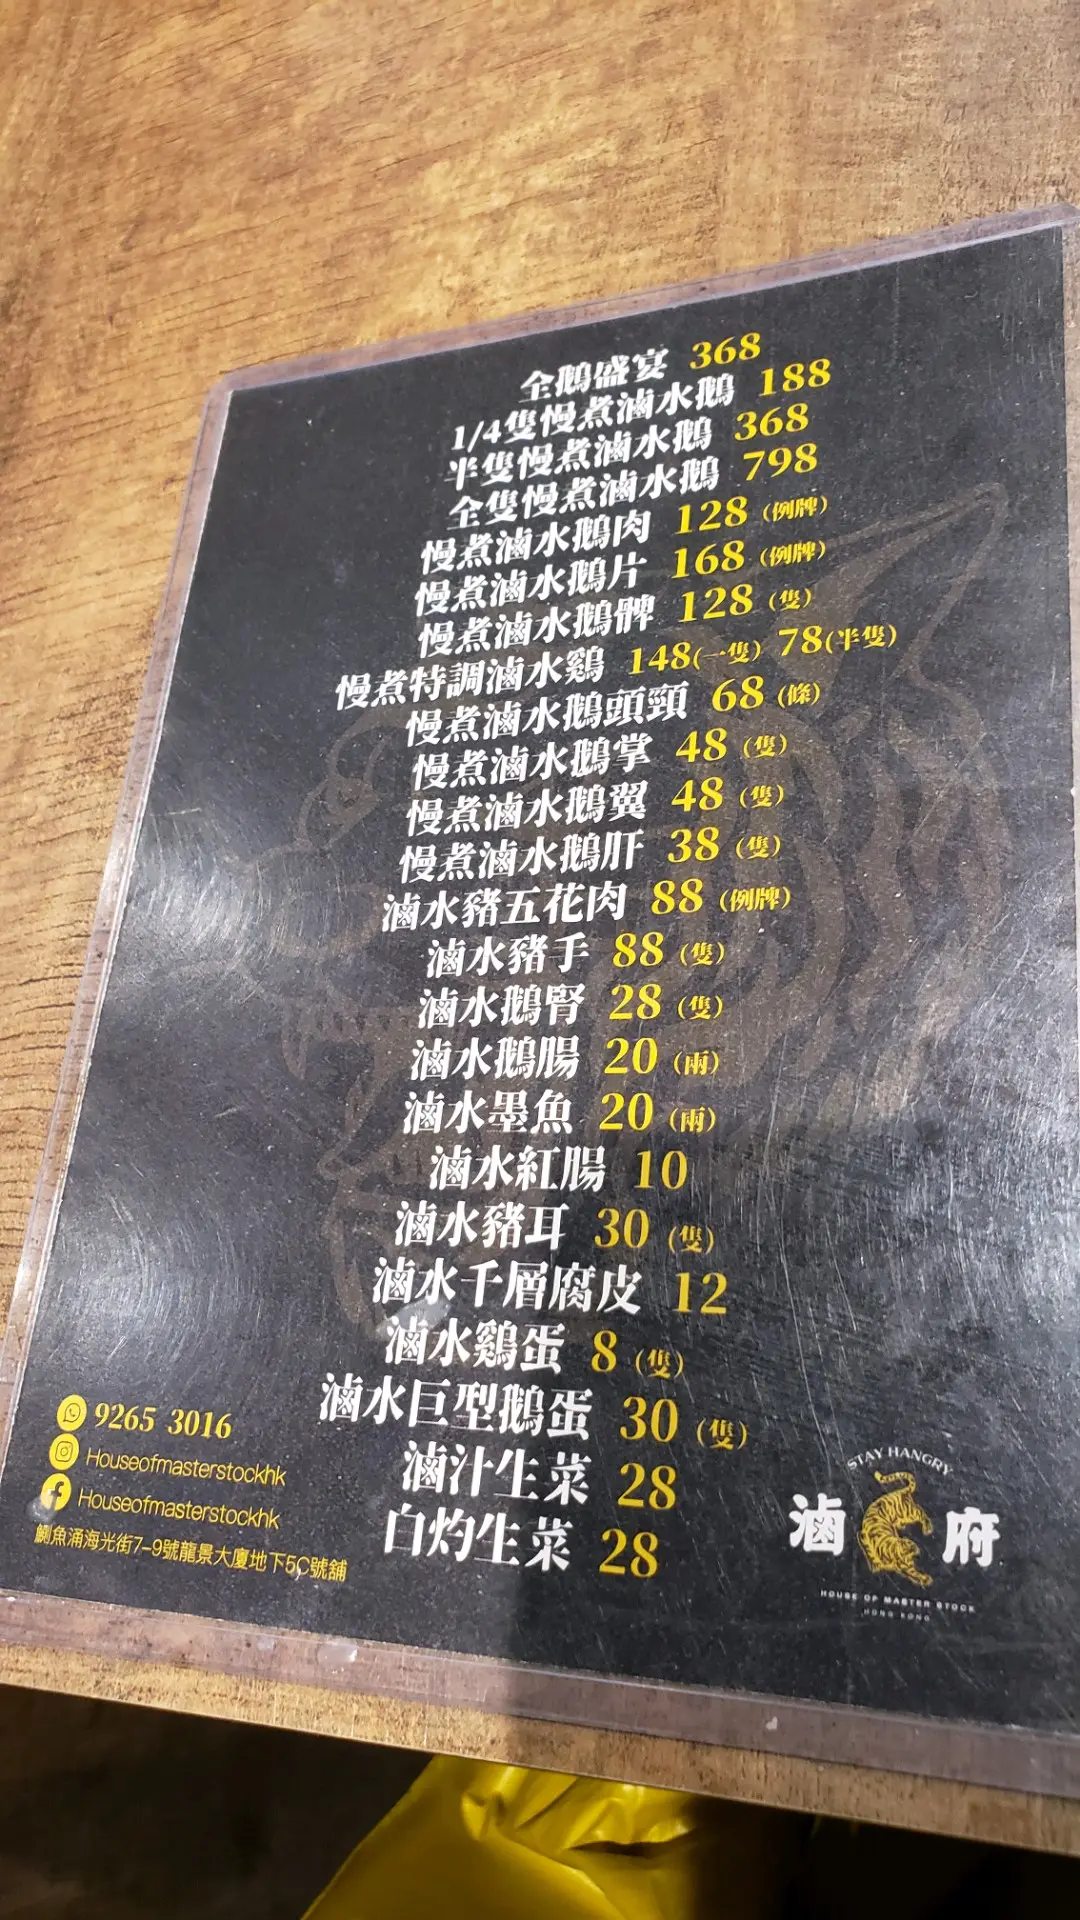 全鵝盛宴 368
1/4隻慢煮滷水鵝 188
半隻慢煮滷水鵝 368
全隻慢煮滷水鵝 798
慢煮滷水鵝肉 128 (例牌)
慢煮滷水鵝片 168 (例牌)
慢煮滷水鵝髀 128 (隻)
慢煮特調滷水鷄 148(一隻) 78(半隻)
慢煮滷水鵝頭頸 68 (條)
慢煮滷水鵝掌 48 (隻)
慢煮滷水鵝翼 48 (隻)
慢煮滷水鵝肝 38 (隻)
滷水豬五花肉 88 (例牌)
滷水豬手 88 (隻)
滷水鵝腎 28 (隻)
滷水鵝腸 20 (兩)
滷水墨魚 20 (兩)
滷水紅腸 10
滷水豬耳 30 (隻)
滷水千層腐皮 12
滷水鷄蛋 8 (隻)
滷水巨型鵝蛋 30 (隻)
滷汁生菜 28
白灼生菜 28
9265 3016
Houseofmasterstockhk
Houseofmasterstockhk
鰂魚涌海光街7-9號龍景大廈地下5C號舖
STAY HANGRY
滷府
HOUSE OF MASTER STOCK
HONG KONG